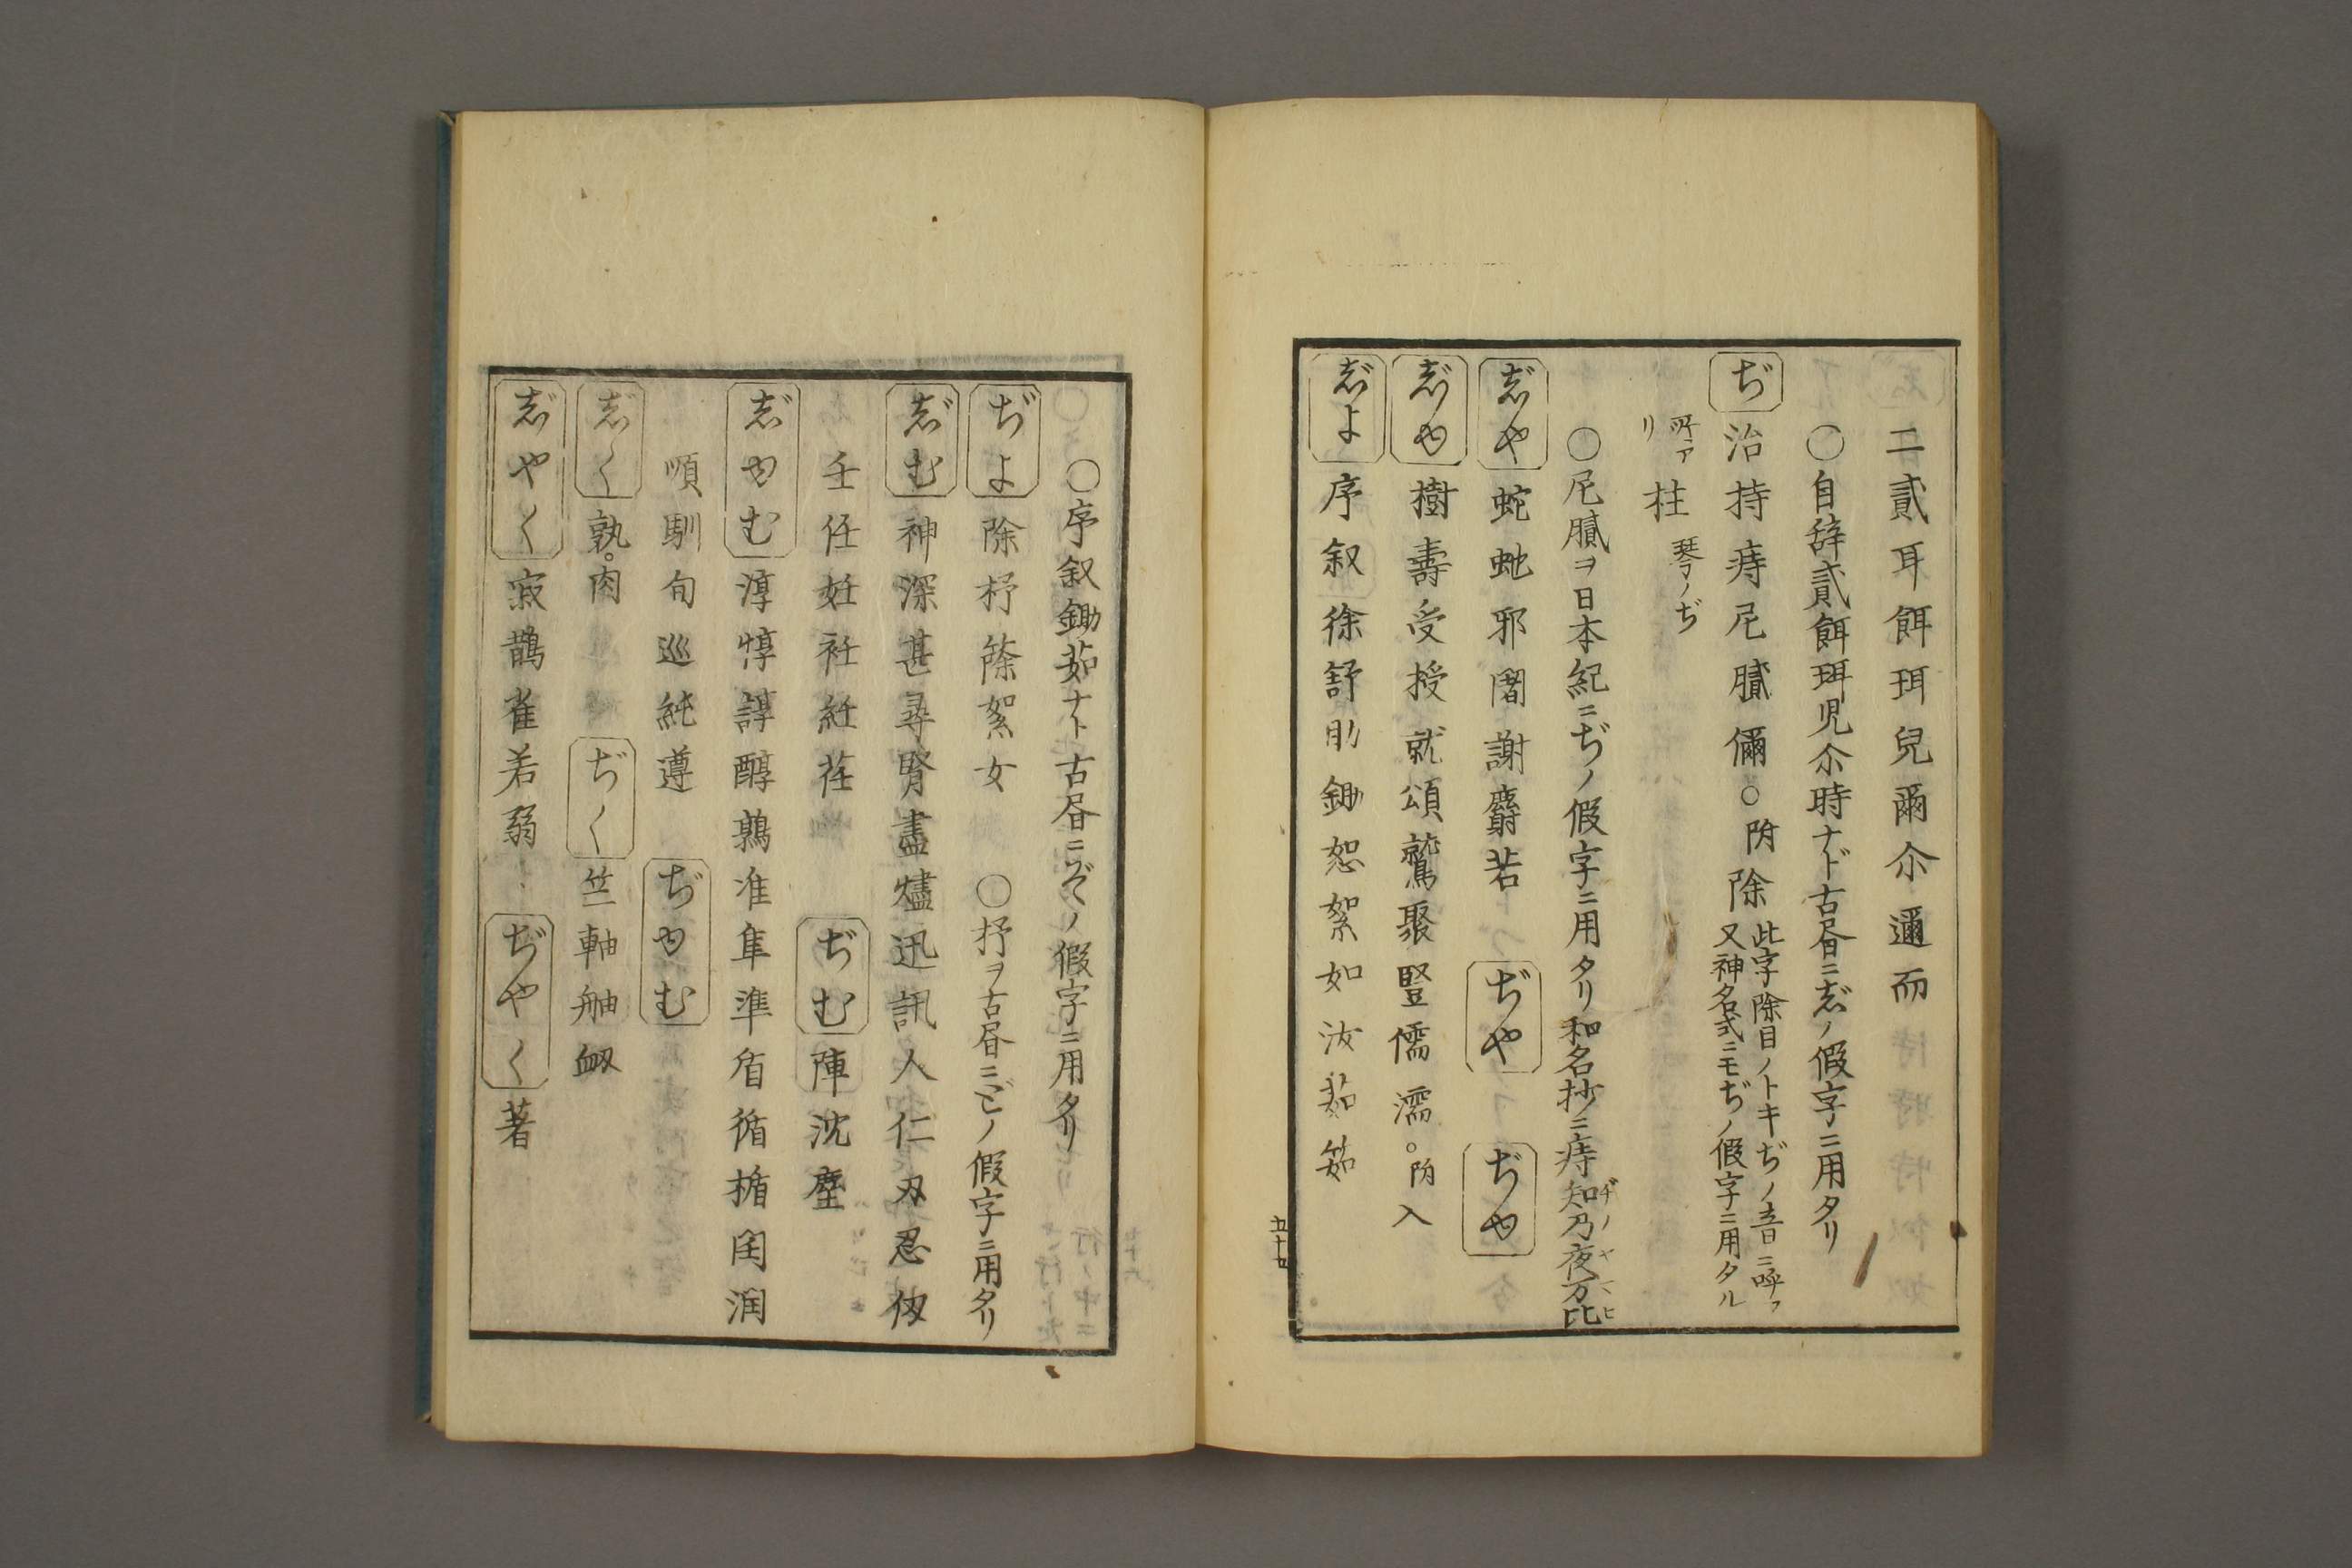 二貳耳餌珥兒爾尒邇而
〇自辞貳餌珥児尒時ナド古書ニじノ假字ニ用タリ
ぢ 治持痔尼膩儞〇附除 此字除目ノトキぢノ音ニ呼フ
又神名式ニモぢノ假字ニ用タル
所アリ 柱 琴ノぢ
〇尼膩ヲ日本紀ニぢノ假字ニ用タリ和名抄ニ痔知乃夜万比
ヂノヤマヒ
じや 蛇虵邪闍謝麝若 ぢや ぢゆ
じゆ 樹壽受授就頌鷲聚豎儒濡。附入
じよ 序叙徐舒助鋤恕絮如汝茹筎
五十四
〇序叙鋤茹ナト古書ニぞノ假字ニ用タリ
ぢよ 除杼篨絮女 〇杼ヲ古書ニどノ假字ニ用タリ
じむ 神深甚尋腎盡燼迅訊人仁刃忍仭
壬任妊衽紝荏 ぢむ 陣沈塵
じゆむ 淳惇諄醇鶉准隼準盾循楯閏潤
順馴旬巡純遵 ぢゆむ
じく 孰。肉 ぢく 竺軸舳衂
じやく 寂鵲雀若弱 ぢやく 著